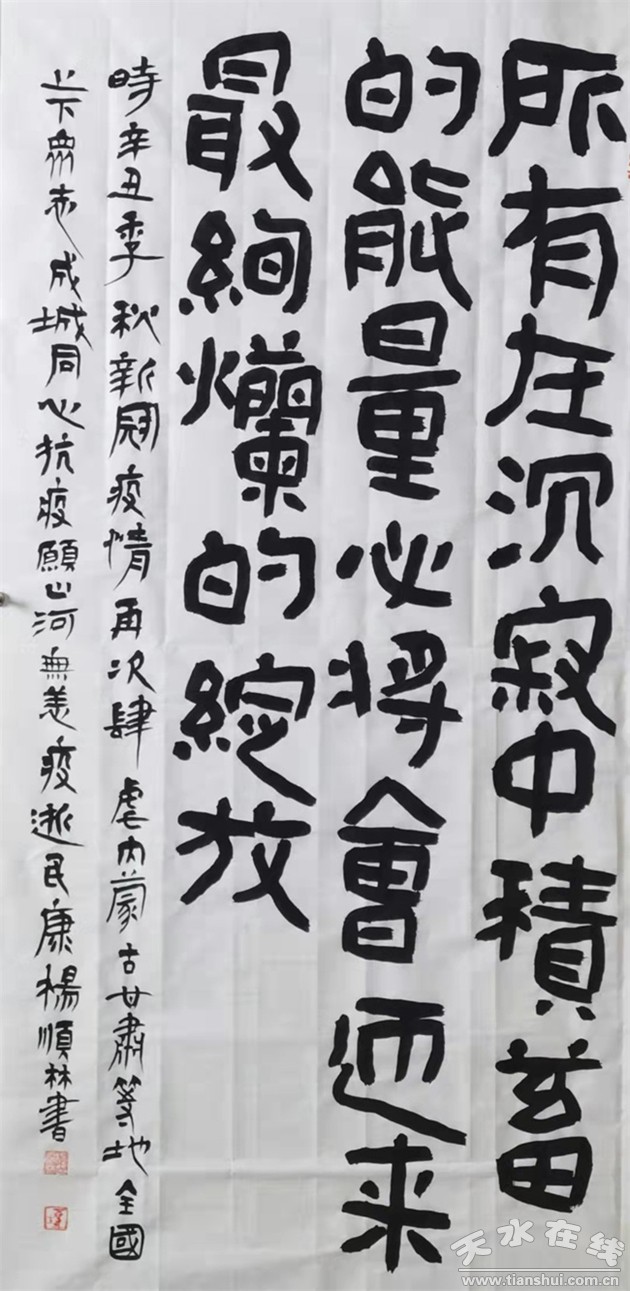 所有在沉寂中積蓄
的能量必将會迎来
最絢爛的綻放
時辛丑季秋新冠疫情再次肆虐内蒙古甘肅等地全國
上下衆志成城同心抗疫願山河無恙疫逝民康楊順林書
天水在线
www.tianshui.com.cn